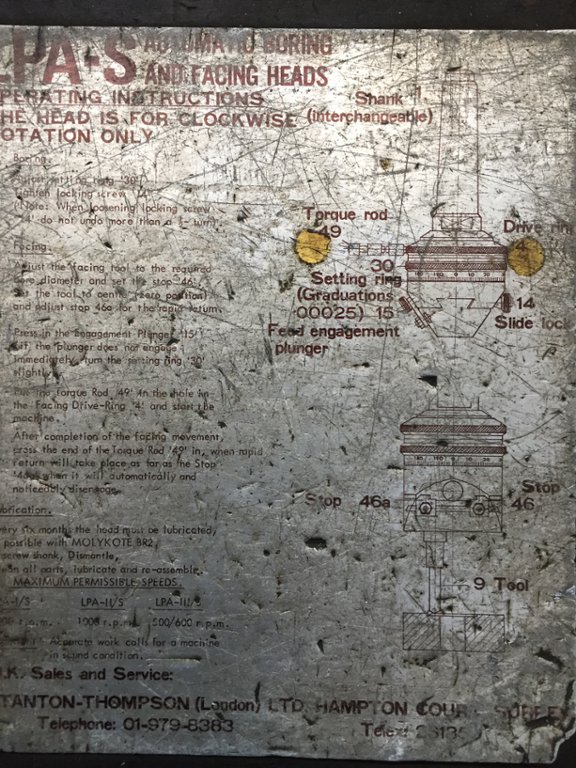 LPA-S AUTOMATIC BORING
AND FACING HEADS
OPERATING INSTRUCTIONS
THE HEAD IS FOR CLOCKWISE
ROTATION ONLY
Shank
(interchangeable)
Boring.
Adjust setting ring '30'
Tighten locking screw '14'
(Note: When loosening locking screw
'14' do not undo more than a turn)
Torque rod
49
Drive ring
4
30
Setting ring
(Graduations
.00025) 15
Feed engagement
plunger
14
Slide lock
Facing.
Adjust the facing tool to the required
bore diameter and set the stop '46'.
Set the tool to centre (zero position)
and adjust stop 46a for the rapid return.
Press in the Engagement Plunger '15'
(if the plunger does not engage
immediately, turn the setting ring '30'
slightly)
Put the Torque Rod '49' in the hole in
the Facing Drive-Ring '4' and start the
machine.
After completion of the facing movement,
press the end of the Torque Rod '49' in, when rapid
return will take place as far as the Stop
'46a' when it will automatically and
noticeably disengage.
Stop 46a
Stop
46
Lubrication.
Every six months the head must be lubricated,
if possible with MOLYKOTE BR2,
screw shank, Dismantle,
clean all parts, lubricate and re-assemble.
MAXIMUM PERMISSIBLE SPEEDS.
LPA-I/S LPA-II/S LPA-III/S
r.p.m. 1000 r.p.m. 500/600 r.p.m.
Accurate work calls for a machine
in sound condition.
9 Tool
U.K. Sales and Service:
STANTON-THOMPSON (London) LTD. HAMPTON COURT SURREY
Telephone: 01-979-8383 Telex: